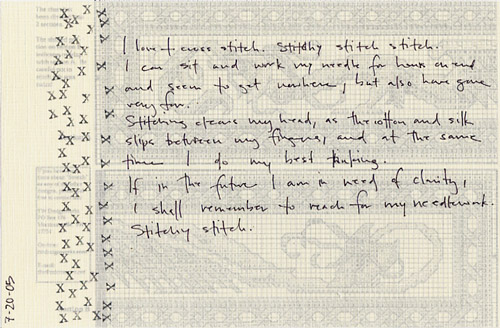 I love to cross stitch. Stitchy stitch stitch.
I can sit and work my needle for hours on end
and seem to get nowhere, but also have gone
very far.
Stitching clears my head, as the cotton and silk
slips between my fingers, and at the same
time I do my best thinking.
If in the future I am in need of clarity,
I shall remember to reach for my needlework.
Stitchy stitch.
7-20-05